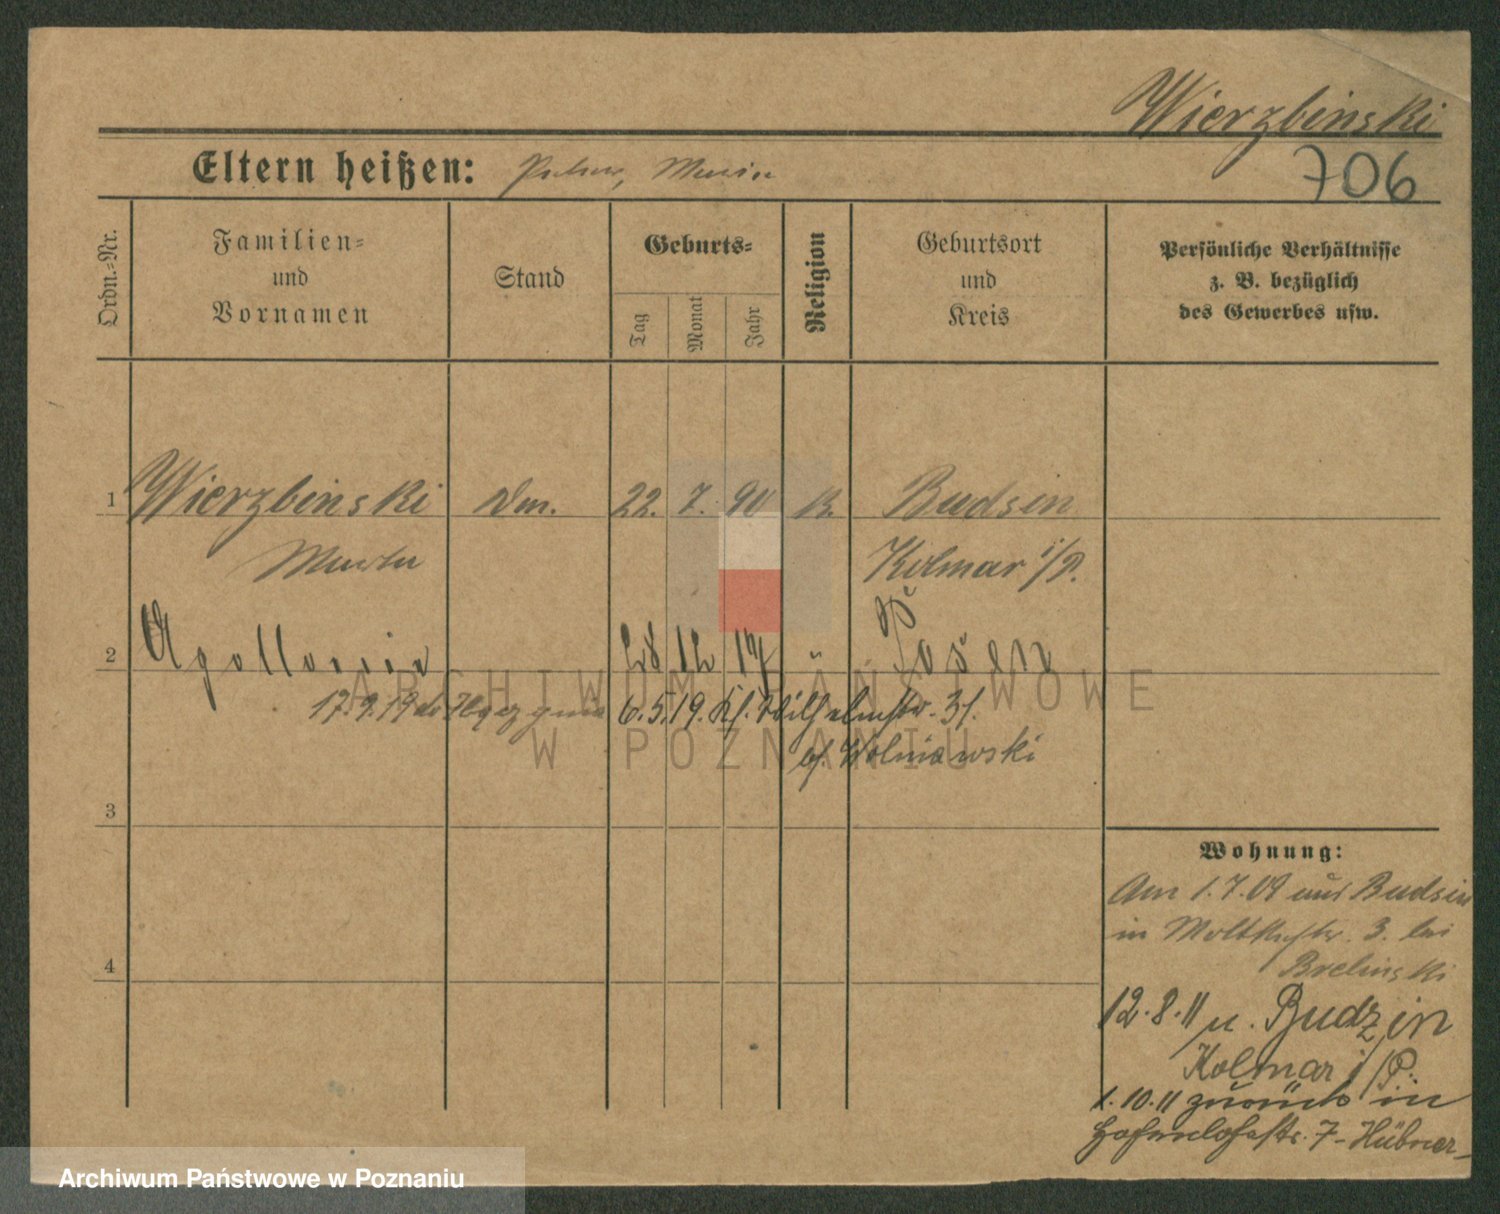 Wierzbinski
Eltern heißen:
706
Ordn.-Nr.
Familien-
und
Vornamen
Stand
Geburts-
Tag
Monat
Jahr
Religion
Geburtsort
und
Kreis
Persönliche Verhältnisse
z. B. bezüglich
des Gewerbes usw.
1 Wierzbinski Dm. 22. 7. 90 K. Budsin
Kolmar i/P.
2 Apollonia 28 12 17 " Posen
ARCHIWUM PAŃSTWOWE
17.9.19 6.5.19. Kl. Wilhelmstr. 31.
W POZNANIU
b/. Wolniewski
3
Wohnung:
Am 1.7.09 aus Budsin
in Moltkestr. 3. bei
Brelinski
4
12.8.11 n. Budzin
Kolmar i/P.
1.10.11 zurück in
Hohenlohestr. 7- Hübner-
Archiwum Państwowe w Poznaniu